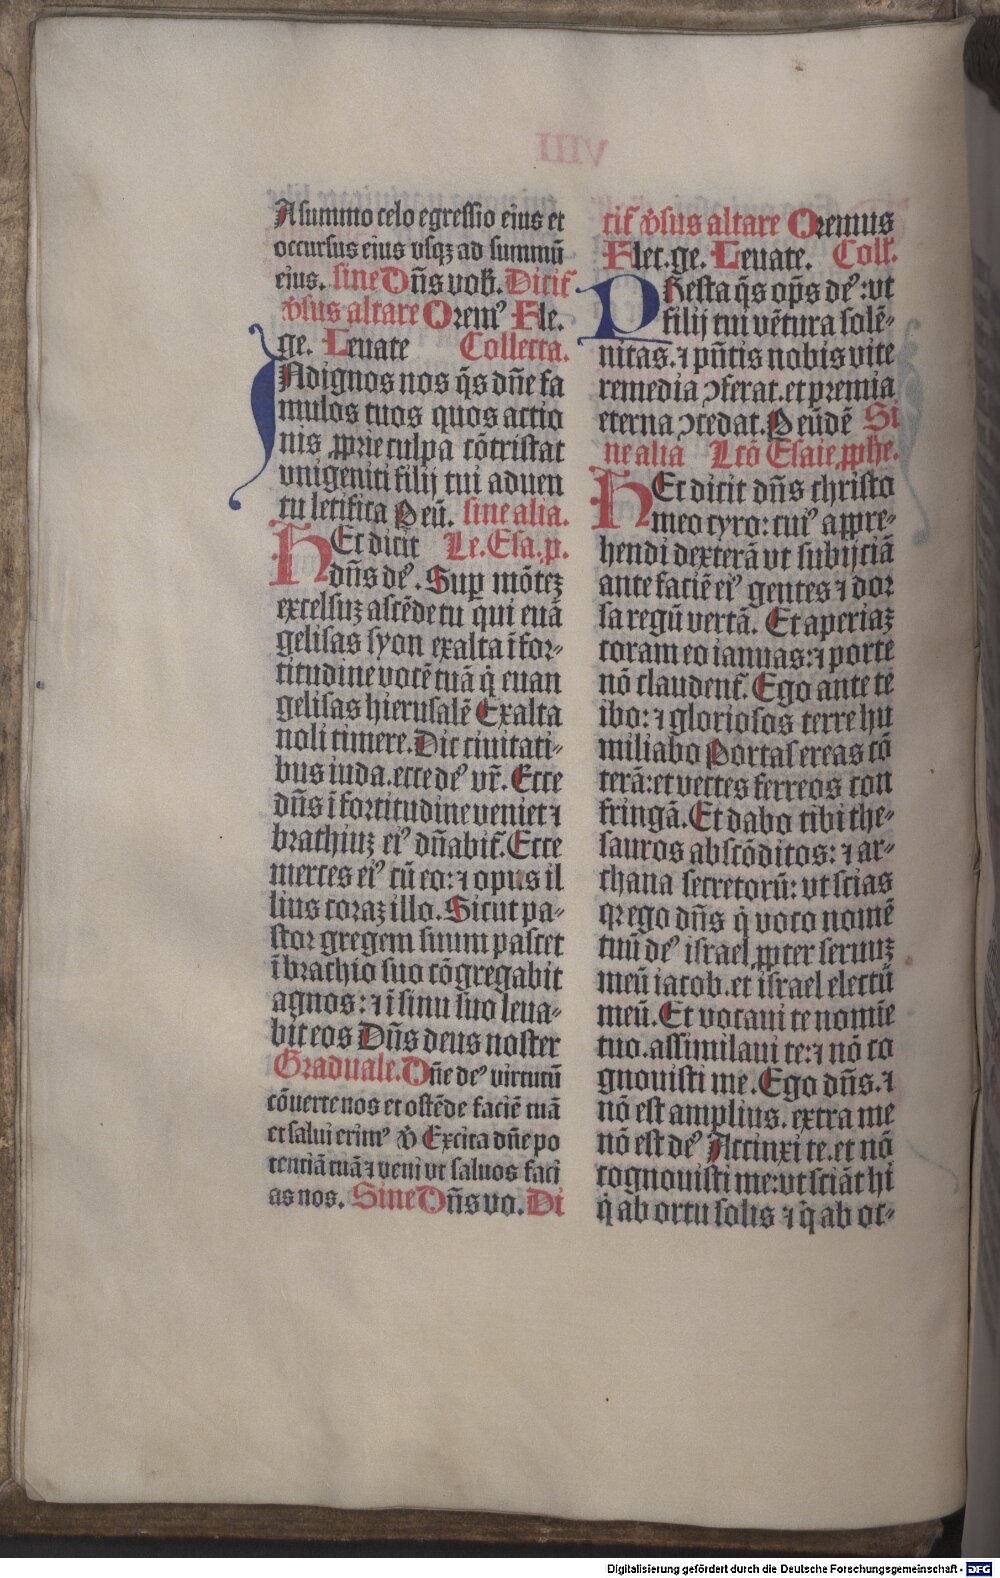 A summo celo egressio eius et
occursus eius vsqꝫ ad summū
eius. sine Dn̄s vob. Dicit᷑
v̾sus altare Orem⁹ Fle.
ge. Leuate Collecta.
Indignos nos q̄s dn̄e fa
mulos tuos quos actio
nis ꝓprie culpa cōtristat
vnigeniti filij tui aduen
tu letifica Peū. sine alia.
Hec dicit Le. Esa. p.
dn̄s de⁹. Suꝑ mōteꝫ
excelsuꝫ ascēde tu qui euā
gelisas syon exalta ī for-
titudine vocē tuā q̇ euan
gelisas hierusalē Exalta
noli timere. Dic ciuitati-
bus iuda. ecce de⁹ vr̄. Ecce
dn̄s ī fortitudine veniet ⁊
brachiuꝫ ei⁹ dn̄abit᷑. Ecce
merces ei⁹ cū eo: ⁊ opus il
lius coraꝫ illo. Sicut pa-
stor gregem suum pascet
ī brachio suo cōgregabit
agnos: ⁊ ī sinu suo leua-
bit eos Dn̄s deus noster
Graduale. Dn̄e de⁹ virtutū
cōuerte nos et ostēde faciē tuā
et salui erim⁹ v̾ Excita dn̄e po
tentiā tuā ⁊ veni vt saluos faci
as nos. Sine Dn̄s vo. Di
cit᷑ v̾sus altare Oremus
Flec. ge. Leuate. Coll᷑.
PResta q̄s op̄s de⁹: vt
filij tui vētura solē-
nitas. ⁊ pn̄tis nobis vite
remedia ꝯferat. et premia
eterna ꝯcedat. Peūdē Si
ne alia Lcō Esaie ꝓphe.
HEc dicit dn̄s christo
meo cyro: cui⁹ appre-
hendi dexterā vt subijciā
ante faciē ei⁹ gentes ⁊ dor
sa regū vertā. Et aperiaꝫ
coram eo ianuas: ⁊ porte
nō claudent᷑. Ego ante te
ibo: ⁊ gloriosos terre hu
miliabo Portas ereas cō
terā: et vectes ferreos con
fringā. Et dabo tibi the-
sauros abscōditos: ⁊ ar-
chana secretorū: vt scias
qr ego dn̄s q̇ voco nomē
tuū de⁹ israel ꝓpter seruuꝫ
meū iacob. et israel electū
meū. Et vocaui te nomīe
tuo. assimilaui te: ⁊ nō co
gnouisti me. Ego dn̄s. ⁊
nō est amplius. extra me
nō est de⁹ Accinxi te. et nō
cognouisti me: vt sciāt hi
q̇ ab ortu solis ⁊ q̇ ab oc-
Digitalisierung gefördert durch die Deutsche Forschungsgemeinschaft - DFG